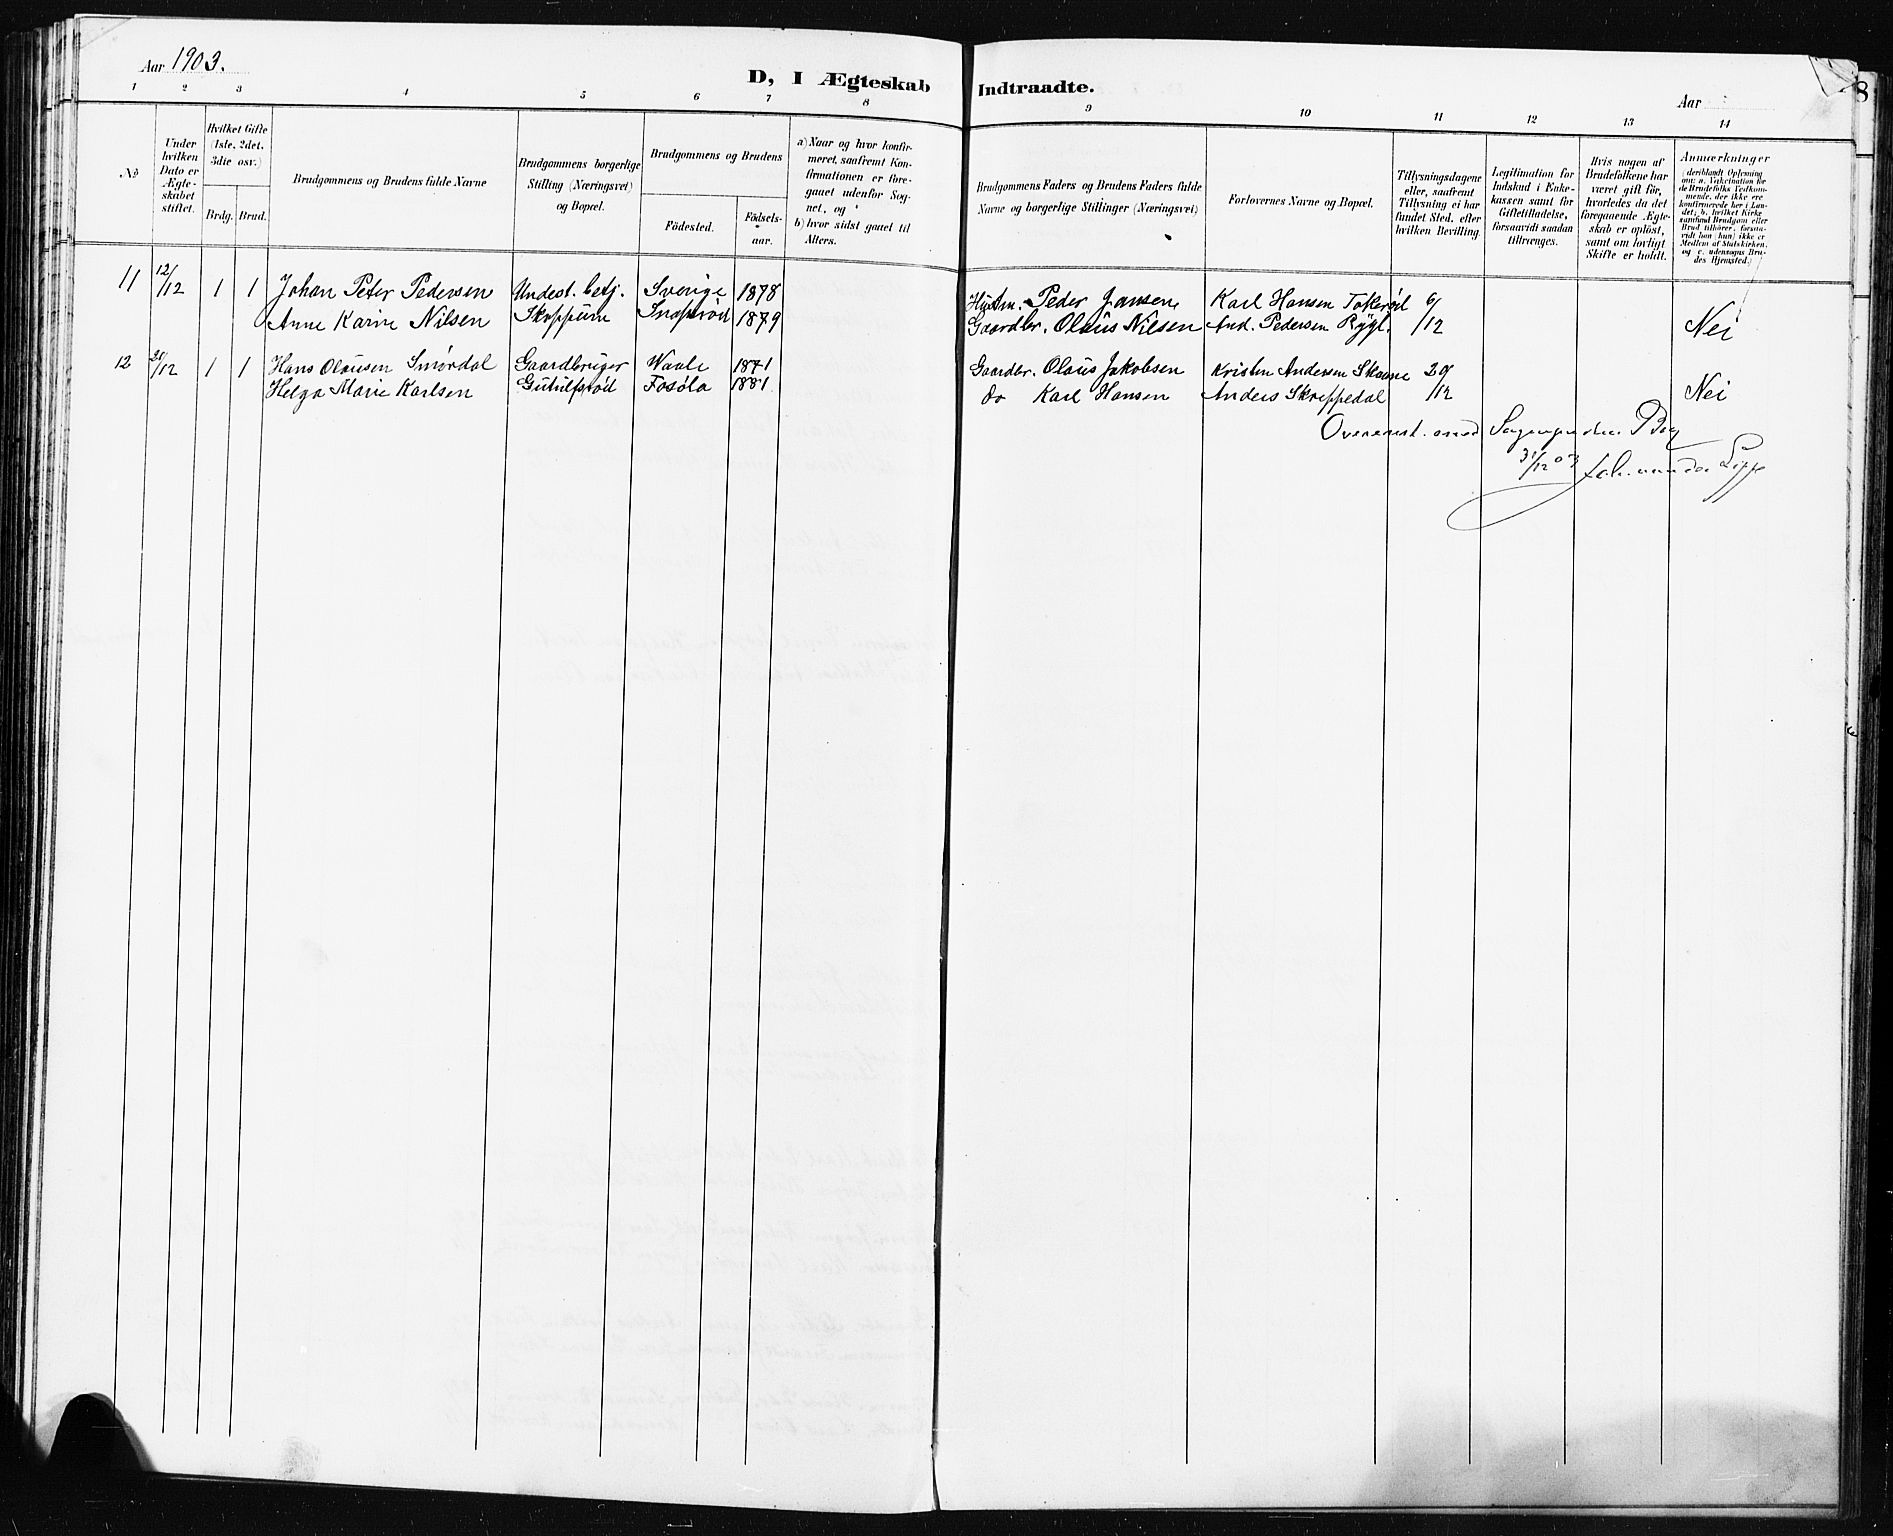 Aar 1903.
D, I Ægteskab Indtraadte.
Aar
8
1 2 3 4 5 6 7 8 9 10 11 12 13 14
No
Under hvilken Dato er Ægteskabet stiftet.
Hvilket Gifte (1ste, 2det, 3die osv.)
Brdg. Brud.
Brudgommens og Brudens fulde Navne
Brudgommens borgerlige Stilling (Næringsvei) og Bopæl.
Brudgommens og Brudens
Fødested.
Fødselsaar.
a) Naar og hvor konfirmeret, saafremt Konfirmationen er foregaaet udenfor Sognet, og
b) hvor sidst gaaet til Alters.
Brudgommens Faders og Brudens Faders fulde Navne og borgerlige Stillinger (Næringsvei)
Forlovernes Navne og Bopæl.
Tillysningsdagene eller, saafremt Tillysning ei har fundet Sted, efter hvilken Bevilling.
Legitimation for Indskud i Enkekassen samt for Giftetilladelse, forsaavidt saadan tiltrænges.
Hvis nogen af Brudefolkene har været gift før, hvorledes da det foregaaende Ægteskab er opløst, samt om lovligt Skifte er holdt.
Anmærkninger (deriblandt Oplysning om: a. Vakcination for de Brudefolks Vedkommende, der ikke ere konfirmerede her i Landet; b. hvilket Kirkesamfund Brudgom eller Brud tilhører, forsaavidt han (hun) ikke er Medlem af Statskirken, og c. udensogns Brudes Hjemsted.)
11 12/12 1 1 Johan Peter Pedersen Undest. betj. Sverige 1878 Peder Jansen Karl Hansen Tokerød 6/12
Anne Karine Nilsen Skoppum 1879 Gaardbr. Olaus Nilsen And. Pedersen Nei
12 1 1 Hans Olausen Smørdal Gaardbruger Waale 1871 Gaardbr. Olaus Jakobsen Kristen Andersen 20/12
Helga Marie Karlsen Gutulfsrød Fosøla 1881. do Karl Hansen Anders Skreppedal Nei
Overenst. med Bog
31/12 03